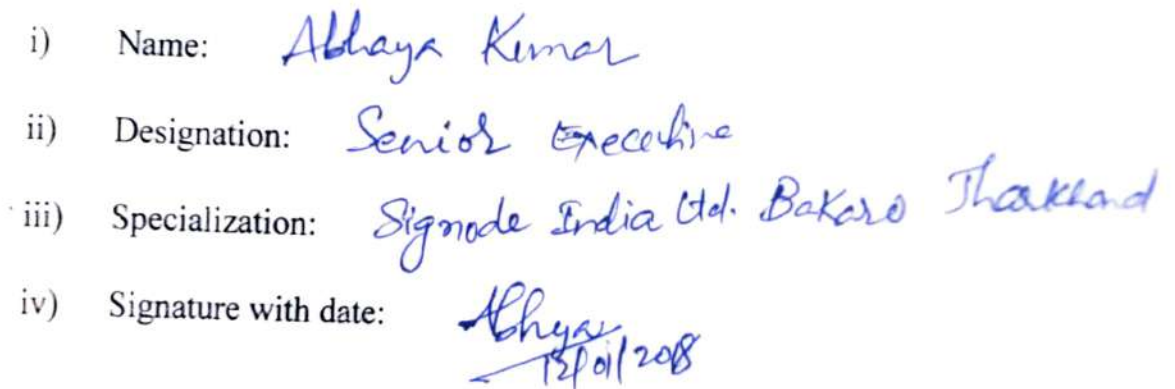 i) Name: Abhaya Kumar
ii) Designation: Senior Executive
iii) Specialization: Signode India Ltd. Bokaro Jharkhand
iv) Signature with date: Abhya
12/01/2018